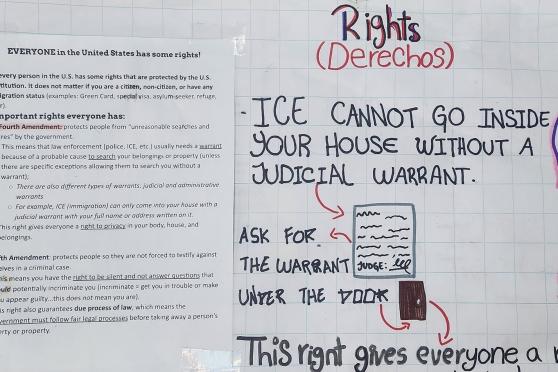 EVERYONE in the United States has some rights!
every person in the U.S. has some rights that are protected by the U.S.
titution. It does not matter if you are a citizen, non-citizen, or have any
igration status (examples: Green Card, special visa, asylum-seeker, refuge,
r).
mportant rights everyone has:
Fourth Amendment: protects people from "unreasonable searches and
res" by the government.
This means that law enforcement (police, ICE, etc.) usually needs a warrant
because of a probable cause to search your belongings or property (unless
there are specific exceptions allowing them to search you without a
warrant).
○ There are also different types of warrants: judicial and administrative
warrants
○ For example, ICE (immigration) can only come into your house with a
judicial warrant with your full name or address written on it.
his right gives everyone a right to privacy in your body, house, and
elongings.
fth Amendment: protects people so they are not forced to testify against
elves in a criminal case.
his means you have the right to be silent and not answer questions that
uld potentially incriminate you (incriminate = get you in trouble or make
u appear guilty...this does not mean you are).
is right also guarantees due process of law, which means the
vernment must follow fair legal processes before taking away a person's
erty or property.
Rights
(Derechos)
- ICE CANNOT GO INSIDE
YOUR HOUSE WITHOUT A
JUDICIAL WARRANT.
ASK FOR
THE WARRANT
UNDER THE DOOR
JUDGE:
This right gives everyone a r